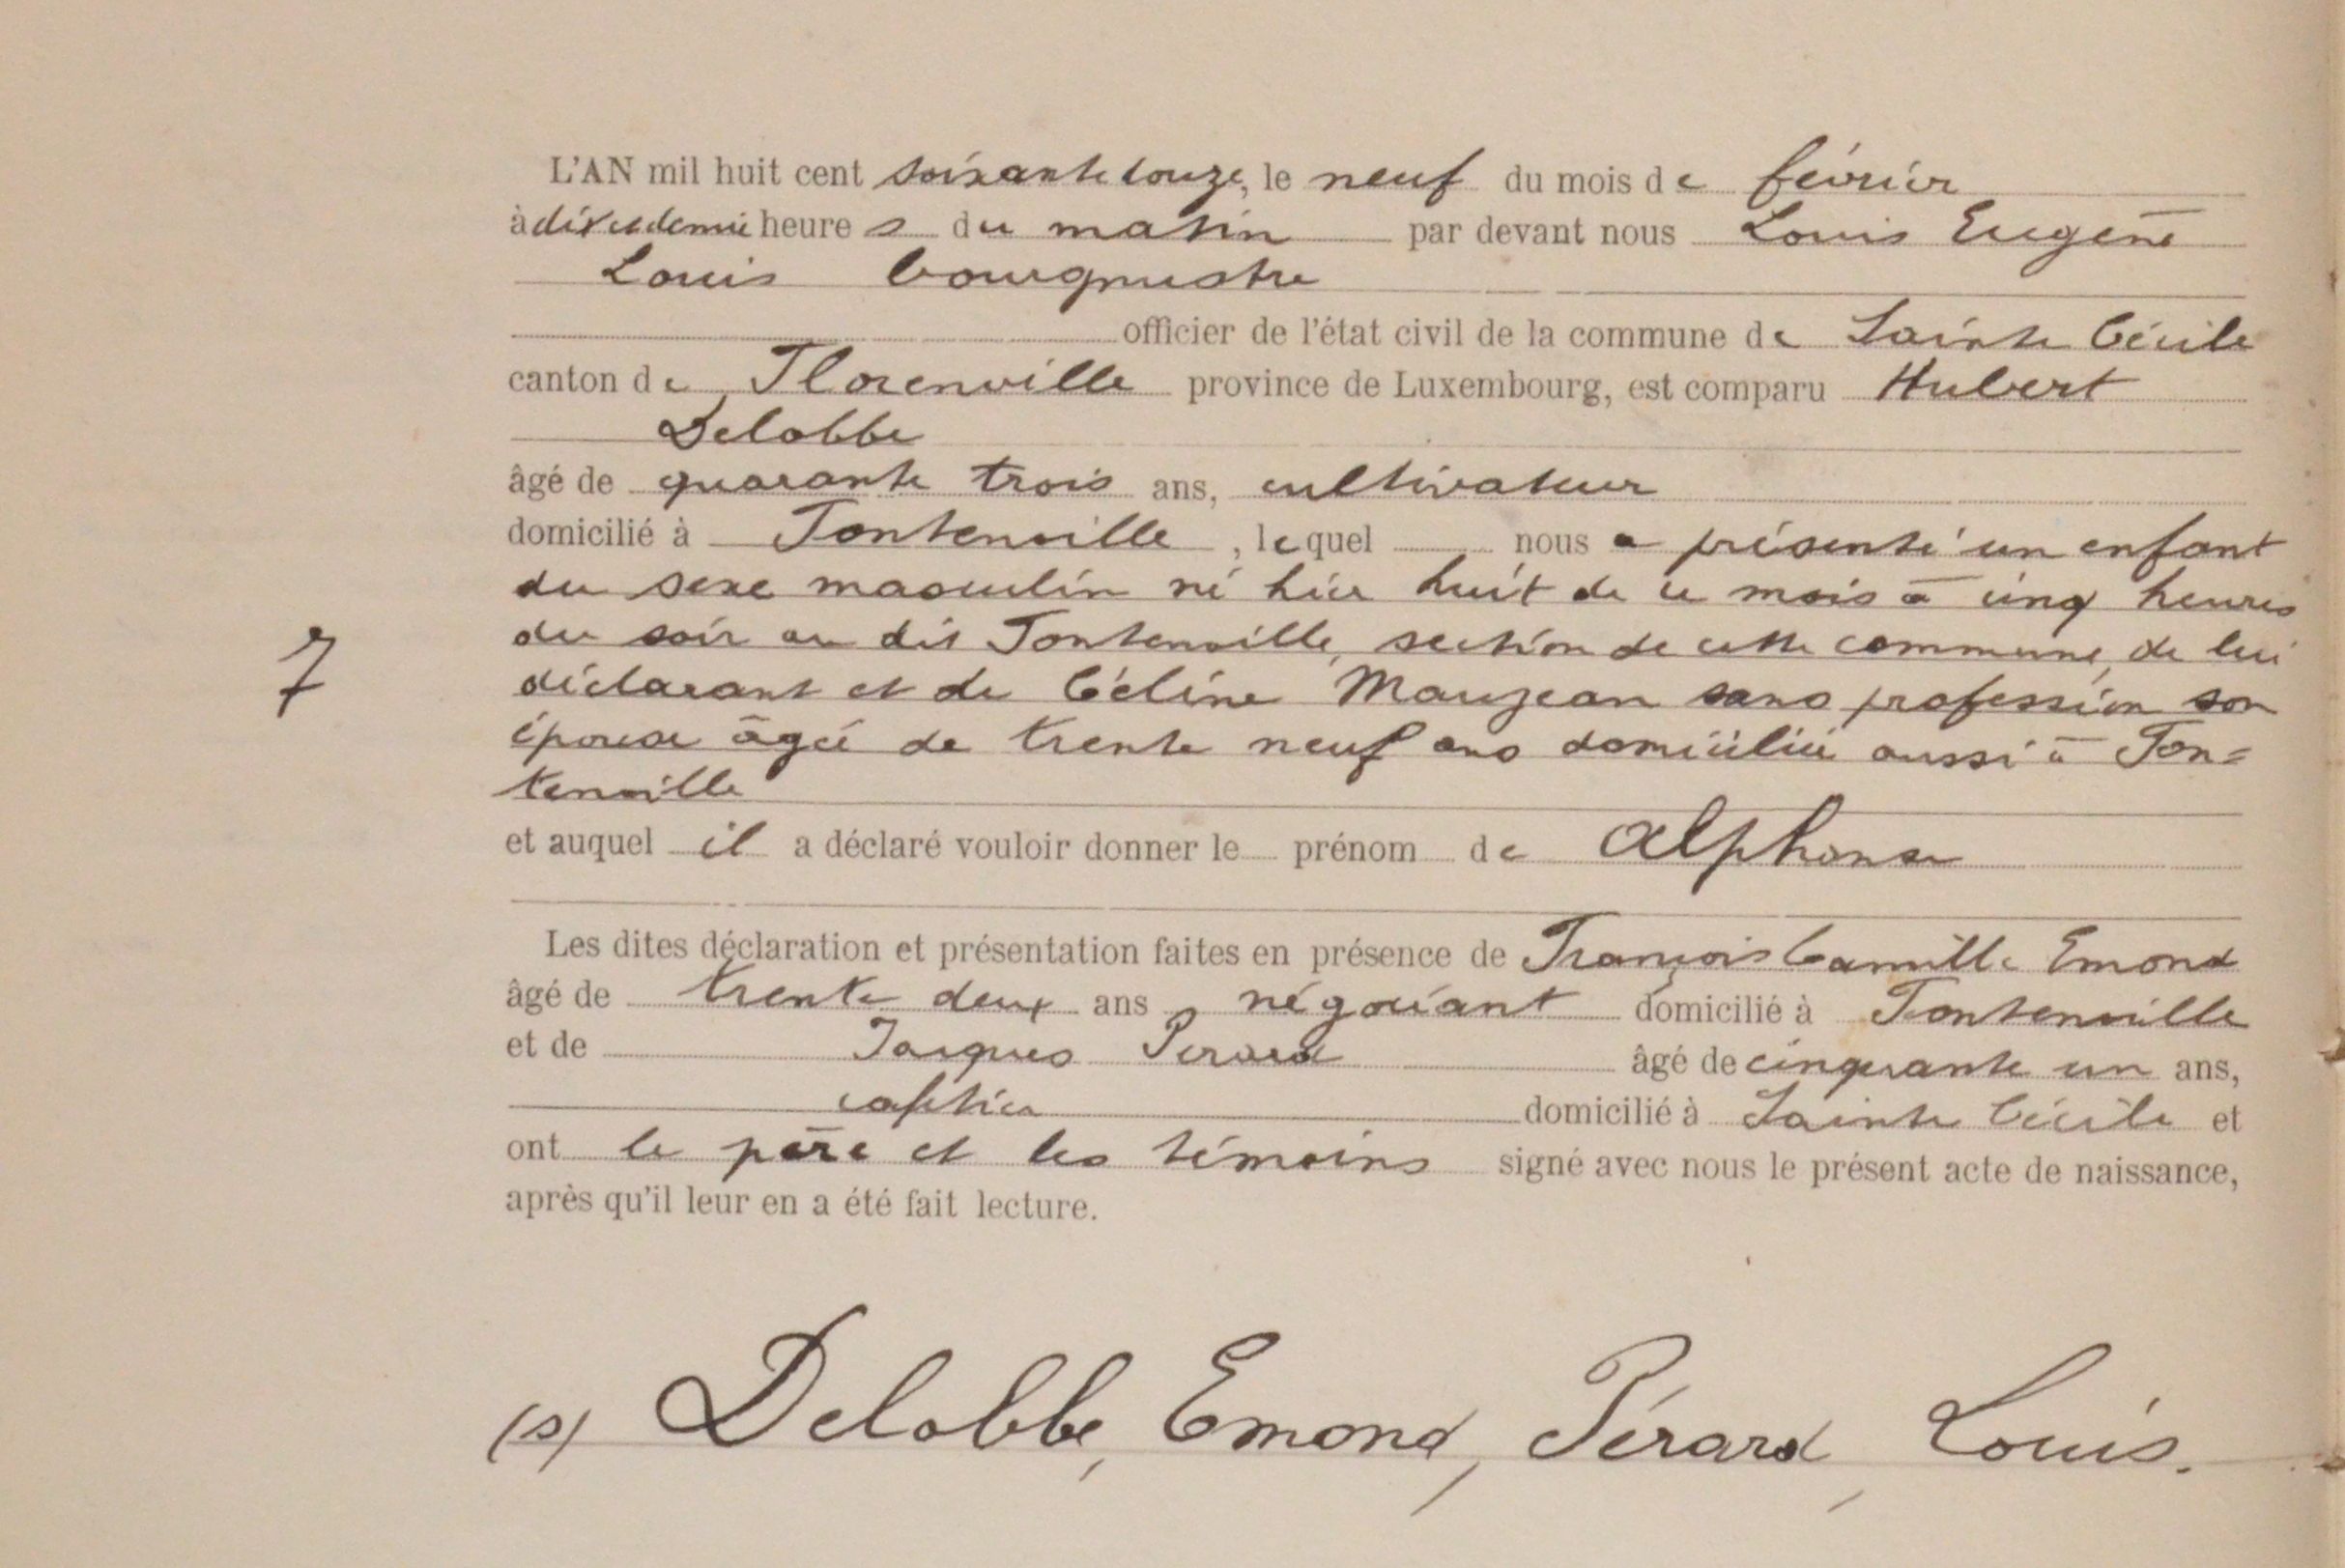 L'AN mil huit cent soixante douze, le neuf du mois de février
à dix et demie heures du matin par devant nous Louis Eugène
Louis bourgmestre
officier de l'état civil de la commune de Sainte Cécile
canton de Florenville province de Luxembourg, est comparu Hubert
Delobbe
âgé de quarante trois ans, cultivateur
domicilié à Fontenoille, lequel nous a présenté un enfant
du sexe masculin né hier huit de ce mois à cinq heures
du soir au dit Fontenoille, section de cette commune, de lui
7
déclarant et de Céline Maujean sans profession son
épouse âgée de trente neuf ans domiciliée aussi à Fon=
tenoille
et auquel il a déclaré vouloir donner le prénom de Alphonse
Les dites déclaration et présentation faites en présence de François Camille Emond
âgé de trente deux ans négociant domicilié à Fontenoille
et de Jacques Perard âgé de cinquante un ans,
cafetier domicilié à Sainte Cécile et
ont le père et les témoins signé avec nous le présent acte de naissance,
après qu'il leur en a été fait lecture.
(s) Delobbe, Emond, Pérard, Louis.